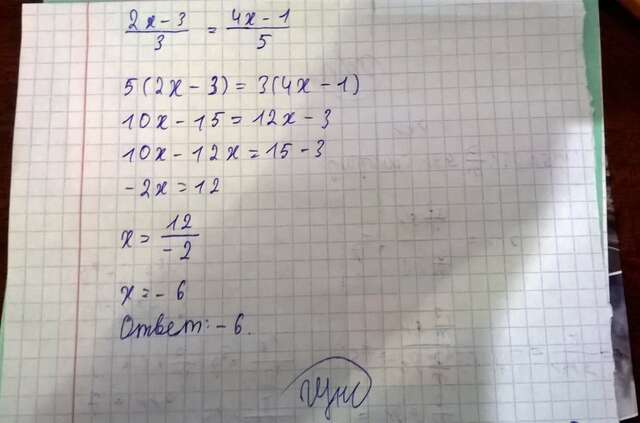 2x-3/3 = 4x-1/5
5(2x-3)=3(4x-1)
10x-15=12x-3
10x-12x=15-3
-2x=12
x=12/-2
x=-6
Ответ:-6.